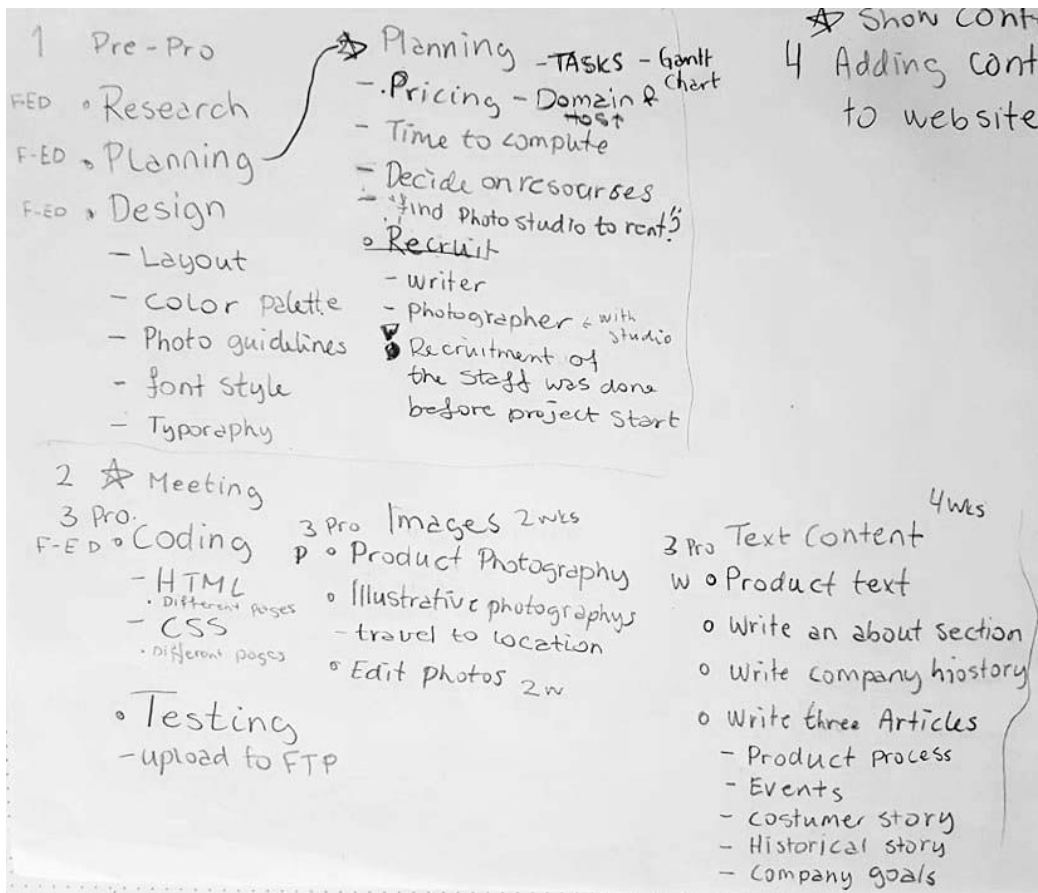 1 Pre-Pro
F-ED • Research
F-ED • Planning
F-ED • Design
- Layout
- Color palette
- Photo guidelines
- font style
- Typoraphy
☆ Planning - TASKS - Gantt Chart
- Pricing - Domain & HOST
- Time to compute
- Decide on resourses
- "find Photo studio to rent?"
• Recruit
- writer
- photographer < with studio
Recruitment of
the staff was done
before project start
☆ Show Cont
4 Adding Cont
to website
2 ☆ Meeting
3 Pro.
F-ED • Coding
- HTML
• Different pages
- CSS
• Different pages
• Testing
- upload to FTP
3 Pro Images 2 wks
P • Product Photography
• Illustrative photographys
- travel to location
• Edit photos 2w
4 wks
3 Pro Text Content
W • Product text
• Write an about section
• Write company hiostory
• Write three Articles
- Product process
- Events
- Costumer story
- Historical story
- Company goals